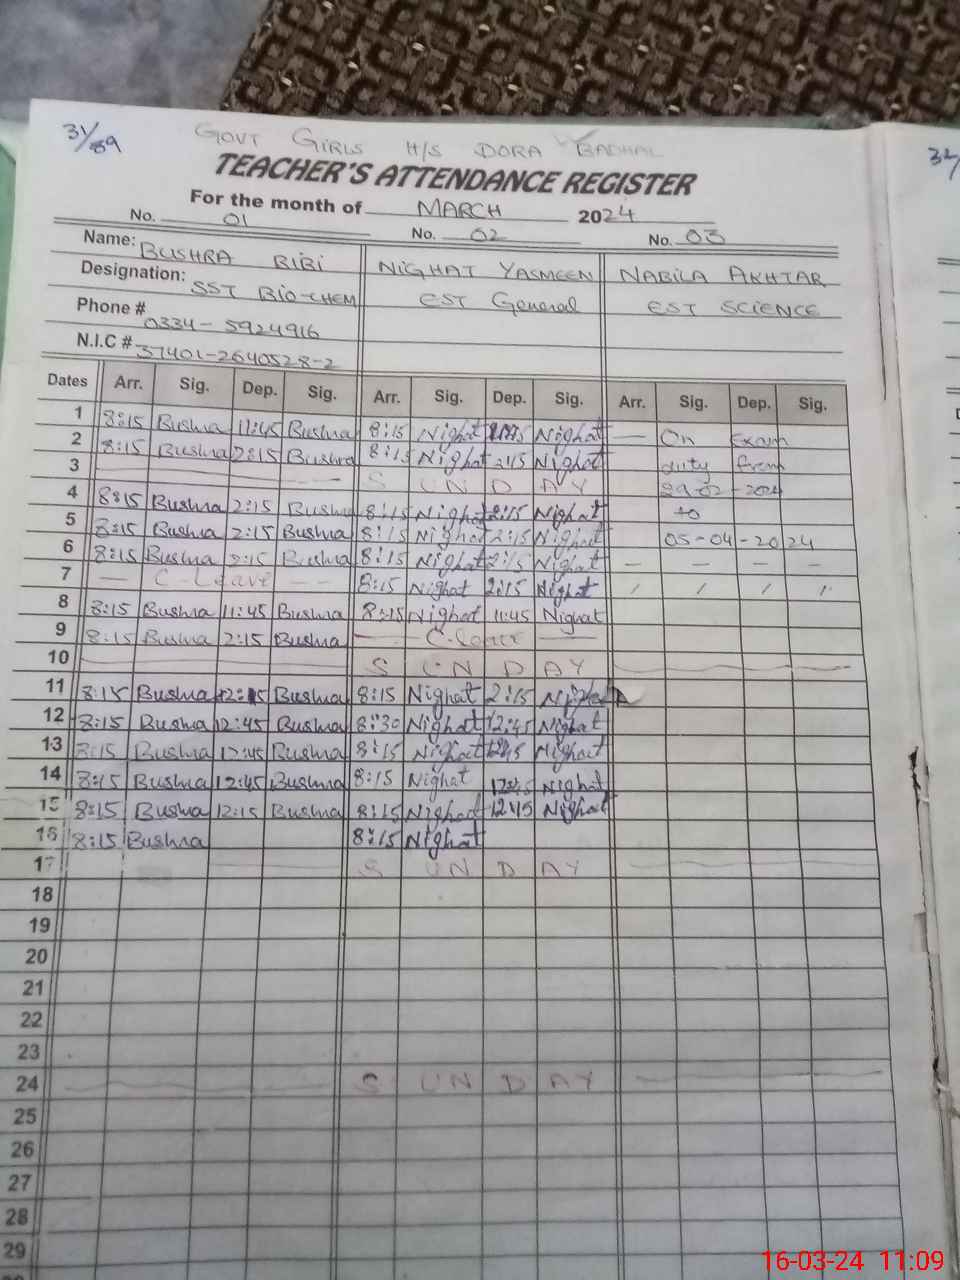 31/89
GOVT GIRLS H/S DORA BADHAL
32/
TEACHER'S ATTENDANCE REGISTER
For the month of MARCH 2024
No. 01 No. 02 No. 03
Name: BUSHRA BIBI NIGHAT YASMEEN NABILA AKHTAR
Designation: SST BIO-CHEM EST General EST SCIENCE
Phone # 0334-5924916
N.I.C # 37401-2640528-2
Dates Arr. Sig. Dep. Sig. Arr. Sig. Dep. Sig. Arr. Sig. Dep. Sig.
1 8:15 Bushra 11:45 Bushra 8:15 Nighat Nighat — On Exam
2 8:15 Bushra 2:15 Bushra 8:15 Nighat 2:15 Nighat duty from
3 SUNDAY 29-02-2024
4 8:15 Bushra 2:15 Bushra 8:15 Nighat 2:15 Nighat to
5 8:15 Bushra 2:15 Bushra 8:15 Nighat 2:15 Nighat 05-04-2024
6 8:15 Bushra 2:15 Bushra 8:15 Nighat 2:15 Nighat — — — —
7 — C-Leave — — 8:15 Nighat 2:15 Nighat
8 8:15 Bushra 11:45 Bushra 8:15 Nighat 11:45 Nighat
9 8:15 Bushra 2:15 Bushra — C-leave —
10 SUNDAY
11 8:15 Bushra Bushra 8:15 Nighat 2:15
12 8:15 Bushra 12:45 Bushra 8:30 Nighat 12:45 Nighat
13 8:15 Bushra 12:45 Bushra 8:15 Nighat 12:45 Nighat
14 8:15 Bushra 12:45 Bushra 8:15 Nighat 12:45 Nighat
15 8:15 Bushra 12:15 Bushra 8:15 Nighat 12:15 Nighat
16 8:15 Bushra 8:15 Nighat
17 SUNDAY
18
19
20
21
22
23
24 SUNDAY
25
26
27
28
29
16-03-24 11:09